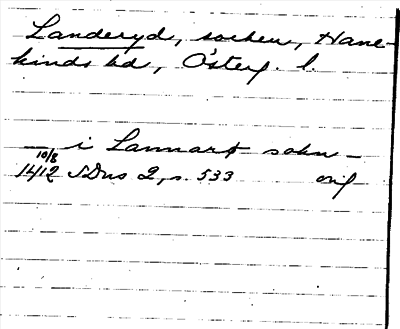 Landeryd, socken, Hane-
kinds hd, Österg. l.
— i Lannart sokn —
10/8
1412 SDns 2, s. 533 orig